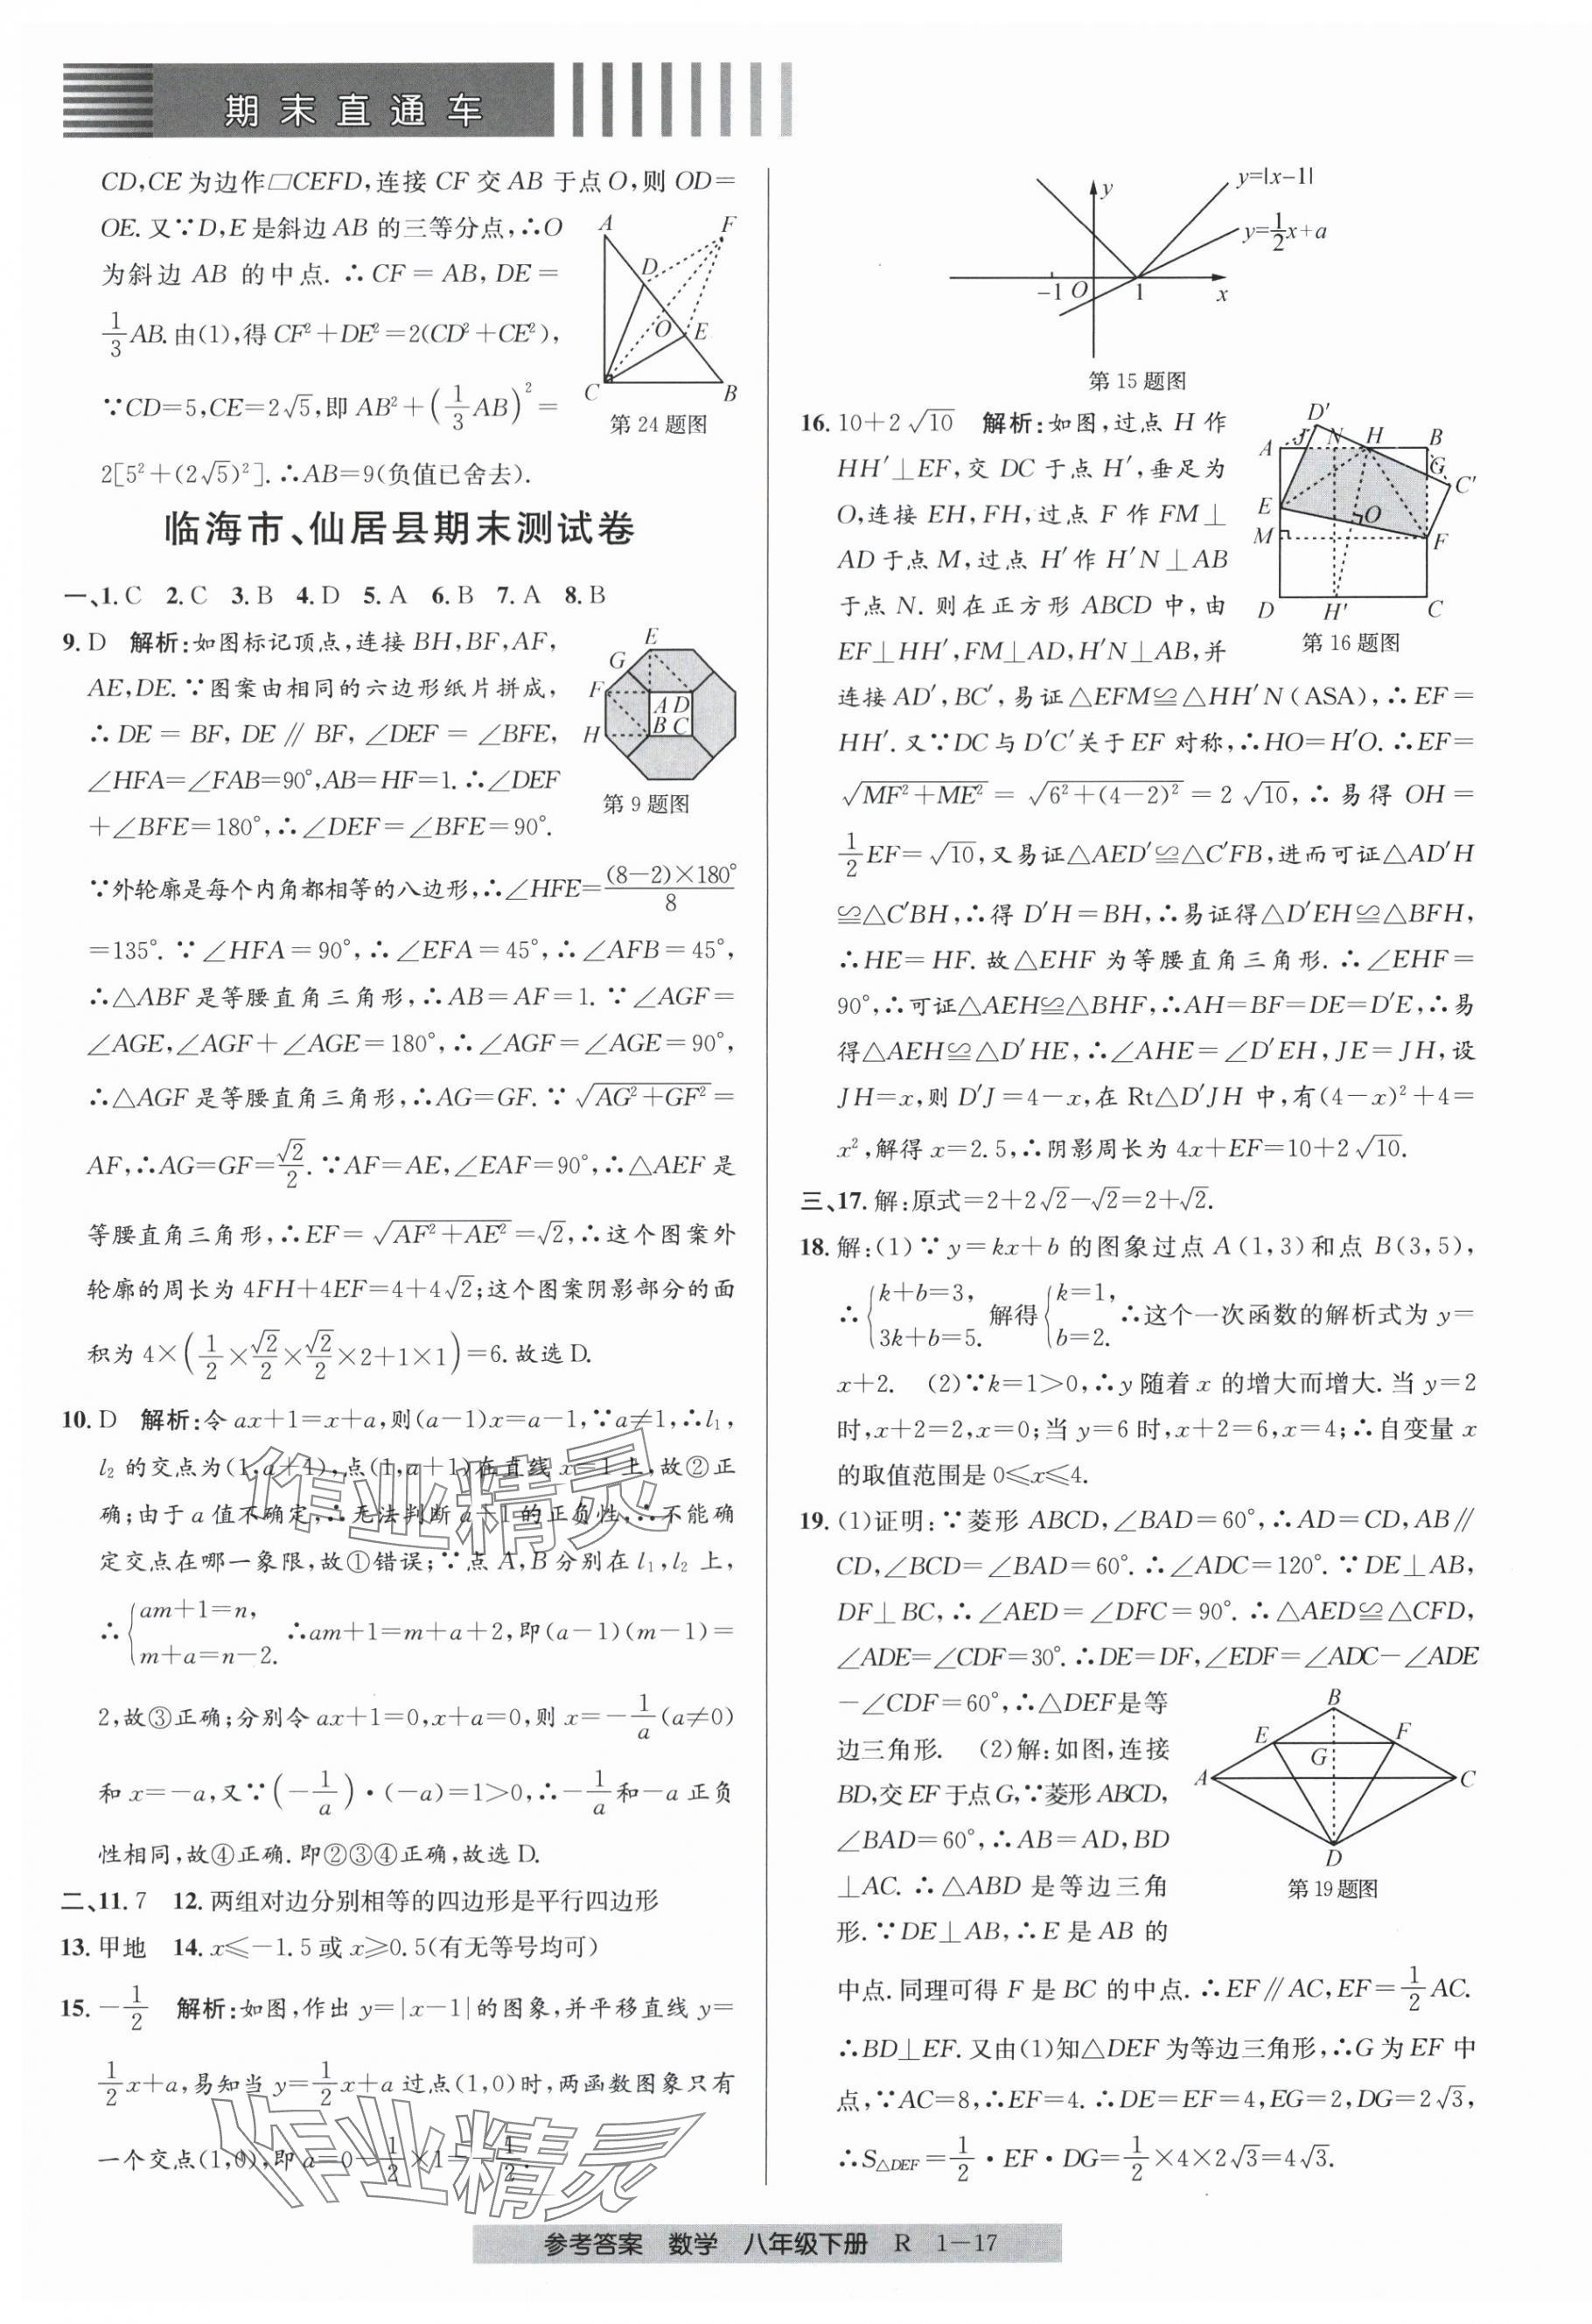 期末直通车
CD,CE为边作□CEFD,连接 CF 交 AB 于点O,则 OD=
OE.又∵D,E是斜边AB 的三等分点,∴O
为斜边 AB 的中点.∴CF=AB,DE=
1/3 AB.由(1),得CF²+DE²=2(CD²+CE²),
∵CD=5,CE=2√5,即AB²+(1/3 AB)²=
2[5²+(2√5)²].∴AB=9(负值已舍去).
A F D O E C B
第24题图
临海市、仙居县期末测试卷
一、1.C 2.C 3.B 4.D 5.A 6.B 7.A 8.B
9.D 解析:如图标记顶点,连接BH,BF,AF,
AE,DE.∵图案由相同的六边形纸片拼成,
∴DE=BF,DE∥BF,∠DEF=∠BFE,
∠HFA=∠FAB=90°,AB=HF=1.∴∠DEF
+∠BFE=180°,∴∠DEF=∠BFE=90°.
E G F A D B C H
第9题图
∵外轮廓是每个内角都相等的八边形,∴∠HFE=(8-2)×180°/8
=135°.∵∠HFA=90°,∴∠EFA=45°,∴∠AFB=45°,
∴△ABF是等腰直角三角形,∴AB=AF=1.∵∠AGF=
∠AGE,∠AGF+∠AGE=180°,∴∠AGF=∠AGE=90°,
∴△AGF是等腰直角三角形,∴AG=GF.∵√(AG²+GF²)=
AF,∴AG=GF=√2/2.∵AF=AE,∠EAF=90°,∴△AEF是
等腰直角三角形,∴EF=√(AF²+AE²)=√2,∴这个图案外
轮廓的周长为4FH+4EF=4+4√2;这个图案阴影部分的面
积为4×(1/2×√2/2×√2/2×2+1×1)=6.故选D.
10.D 解析:令ax+1=x+a,则(a-1)x=a-1,∵a≠1,∴l₁,
l₂的交点为(1,a+1),点(1,a+1)在直线x=1上,故②正
确;由于a值不确定,∴无法判断a+1的正负性,∴不能确
定交点在哪一象限,故①错误;∵点A,B分别在l₁,l₂上,
∴{am+1=n, m+a=n-2. ∴am+1=m+a+2,即(a-1)(m-1)=
2,故③正确;分别令ax+1=0,x+a=0,则x=-1/a(a≠0)
和x=-a,又∵(-1/a)·(-a)=1>0,∴-1/a和-a正负
性相同,故④正确.即②③④正确,故选D.
二、11.7 12.两组对边分别相等的四边形是平行四边形
13.甲地 14.x≤-1.5或x≥0.5(有无等号均可)
15.-1/2 解析:如图,作出y=|x-1|的图象,并平移直线y=
1/2 x+a,易知当y=1/2 x+a过点(1,0)时,两函数图象只有
一个交点(1,0),即a=0-1/2×1=-1/2.
y y=|x-1| y=1/2 x+a -1 O 1 x
第15题图
16.10+2√10 解析:如图,过点H作
HH′⊥EF,交DC于点H′,垂足为
O,连接EH,FH,过点F作FM⊥
AD于点M,过点H′作H′N⊥AB
于点N.则在正方形ABCD中,由
EF⊥HH′,FM⊥AD,H′N⊥AB,并
D′ A J N H B G C′ E O M F D H′ C
第16题图
连接AD′,BC′,易证△EFM≌△HH′N(ASA),∴EF=
HH′.又∵DC与D′C′关于EF对称,∴HO=H′O.∴EF=
√(MF²+ME²)=√(6²+(4-2)²)=2√10,∴易得OH=
1/2 EF=√10,又易证△AED′≌△C′FB,进而可证△AD′H
≌△C′BH,∴得D′H=BH,∴易证得△D′EH≌△BFH,
∴HE=HF.故△EHF为等腰直角三角形.∴∠EHF=
90°,∴可证△AEH≌△BHF,∴AH=BF=DE=D′E,∴易
得△AEH≌△D′HE,∴∠AHE=∠D′EH,JE=JH,设
JH=x,则D′J=4-x,在Rt△D′JH中,有(4-x)²+4=
x²,解得x=2.5,∴阴影周长为4x+EF=10+2√10.
三、17.解:原式=2+2√2-√2=2+√2.
18.解:(1)∵y=kx+b的图象过点A(1,3)和点B(3,5),
∴{k+b=3, 3k+b=5. 解得{k=1, b=2. ∴这个一次函数的解析式为y=
x+2. (2)∵k=1>0,∴y随着x的增大而增大.当y=2
时,x+2=2,x=0;当y=6时,x+2=6,x=4;∴自变量x
的取值范围是0≤x≤4.
19.(1)证明:∵菱形ABCD,∠BAD=60°,∴AD=CD,AB∥
CD,∠BCD=∠BAD=60°.∴∠ADC=120°.∵DE⊥AB,
DF⊥BC,∴∠AED=∠DFC=90°.∴△AED≌△CFD,
∠ADE=∠CDF=30°.∴DE=DF,∠EDF=∠ADC-∠ADE
-∠CDF=60°,∴△DEF是等
边三角形. (2)解:如图,连接
BD,交EF于点G,∵菱形ABCD,
∠BAD=60°,∴AB=AD,BD
⊥AC.∴△ABD是等边三角
形.∵DE⊥AB,∴E是AB的
B E F G A C D
第19题图
中点.同理可得F是BC的中点.∴EF∥AC,EF=1/2 AC.
∴BD⊥EF.又由(1)知△DEF为等边三角形,∴G为EF中
点,∵AC=8,∴EF=4.∴DE=EF=4,EG=2,DG=2√3,
∴S△DEF=1/2·EF·DG=1/2×4×2√3=4√3.
作业精灵
作业精灵
参考答案 数学 八年级下册 R 1-17